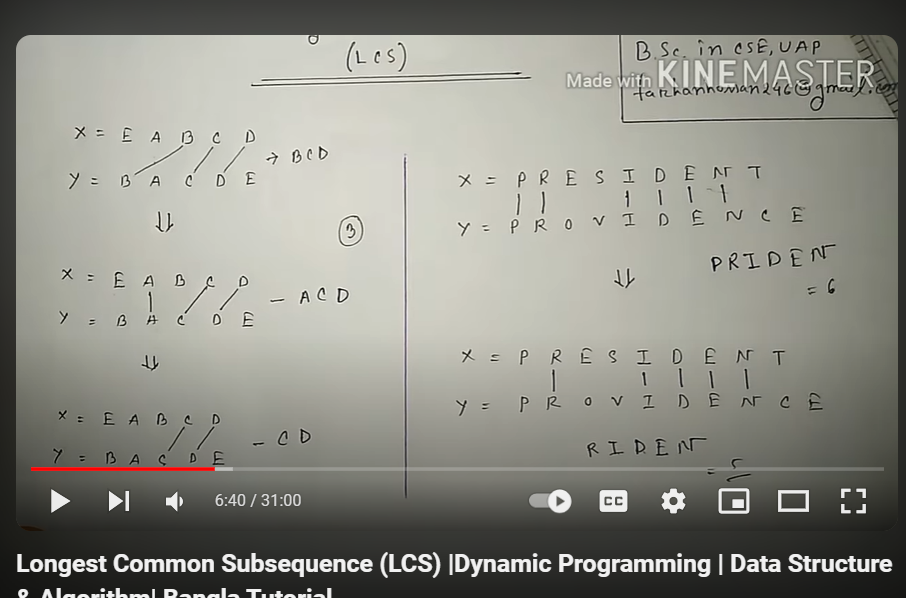 (LCS)
B.Sc. in CSE, UAP
Made with KINEMASTER
X = E A B C D
→ BCD
Y = B A C D E
3
X = E A B C D
- ACD
Y = B A C D E
X = E A B C D
- CD
Y = B A C D E
X = P R E S I D E N T
Y = P R O V I D E N C E
PRIDEN
= 6
X = P R E S I D E N T
Y = P R O V I D E N C E
RIDEN
= 5
6:40 / 31:00
CC
Longest Common Subsequence (LCS) |Dynamic Programming | Data Structure
& Algorithm| Bangla Tutorial